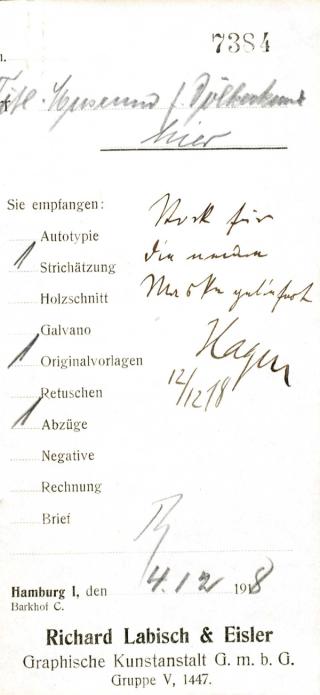 7384
Museum f. Völkerkunde
hier
Sie empfangen:
Autotypie
1 Strichätzung
Holzschnitt
Galvano
1 Originalvorlagen
Retuschen
1 Abzüge
Negative
Rechnung
Brief
für
die
Maske geliefert
Hagen
12/12 18
Hamburg 1, den 4.12 1918
Barkhof C.
Richard Labisch & Eisler
Graphische Kunstanstalt G. m. b. G.
Gruppe V, 1447.